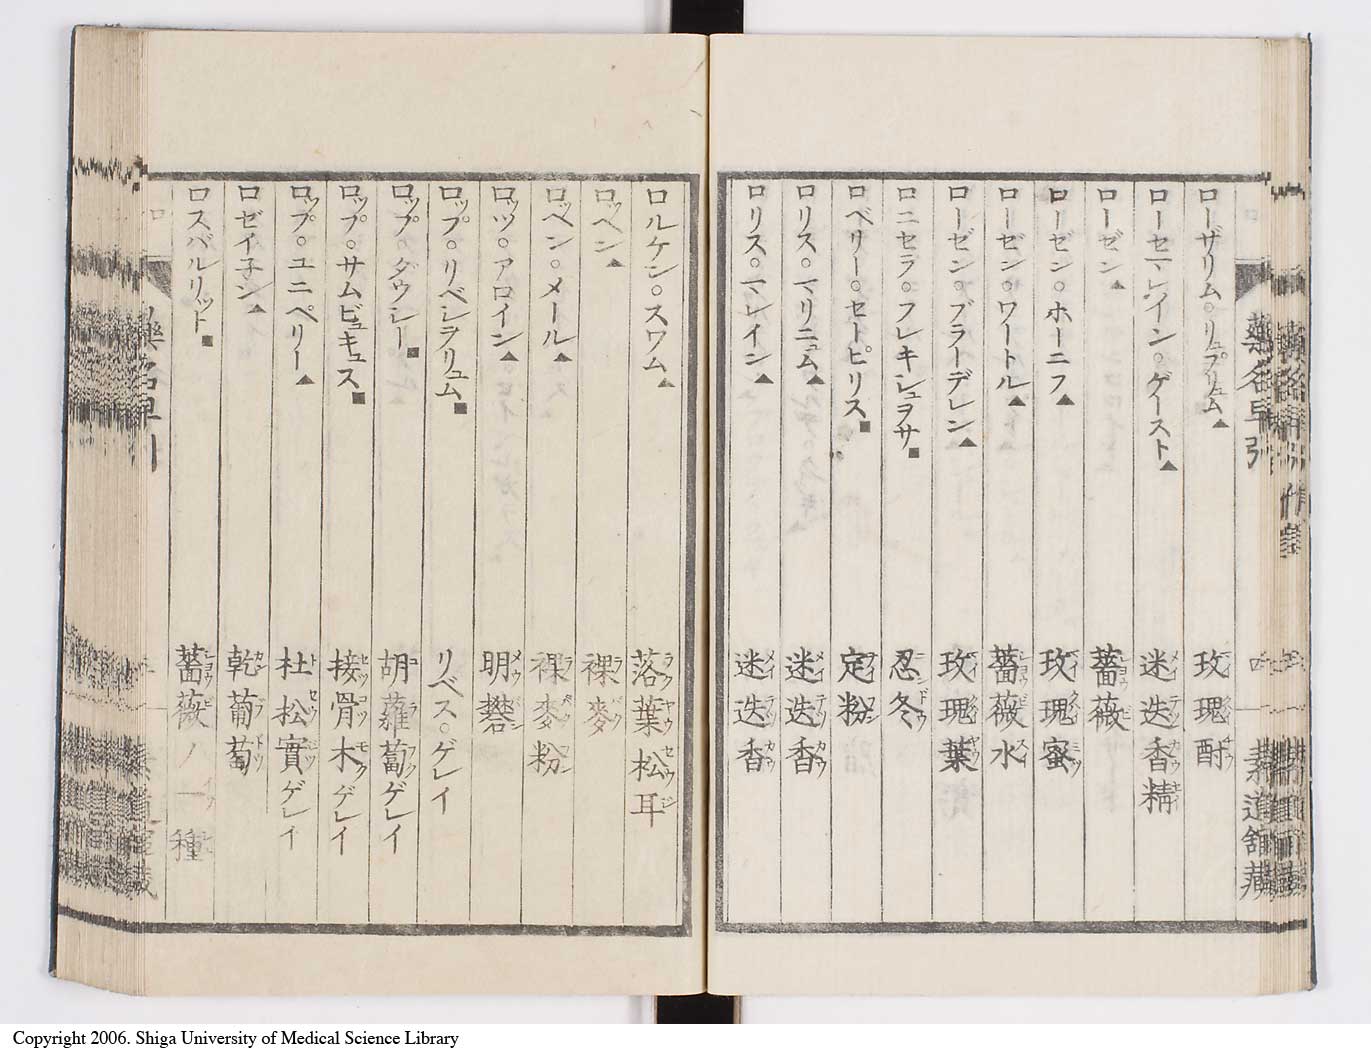 ローザリム○リュプリム▲ 玫瑰酎
ローセマレイン○ゲイースト▲ 迷迭香精
ローゼン▲ 薔薇
ローゼン○ホーニフ▲ 玫瑰蜜
ローゼン○ワートル▲ 薔薇水
ローゼン○ブラーデレン▲ 玫瑰葉
ロニセラ○フレキシュヲサ■ 忍冬
ロベリー○セトピリス■ 定粉
ロリス○マリニュム▲ 迷迭香
ロリス○マレイン▲ 迷迭香
藥名早引
蓁道舘藏
ロルケン○スワム▲ 落葉松耳
ロッヘン▲ 裸麥
ロッペン○メール▲ 裸麥粉
ロッツ○アロイン▲ 明礬
ロップ○リベシヲリュム■ リベス○ゲレイ
ロップ○ダウシー■ 胡蘿蔔ゲレイ
ロップ○サムビュキュス■ 接骨木ゲレイ
ロップ○ユニペリー▲ 杜松實ゲレイ
ロゼイ子ン▲ 乾葡萄
ロスバルリット■ 薔薇ノ一種
Copyright 2006. Shiga University of Medical Science Library